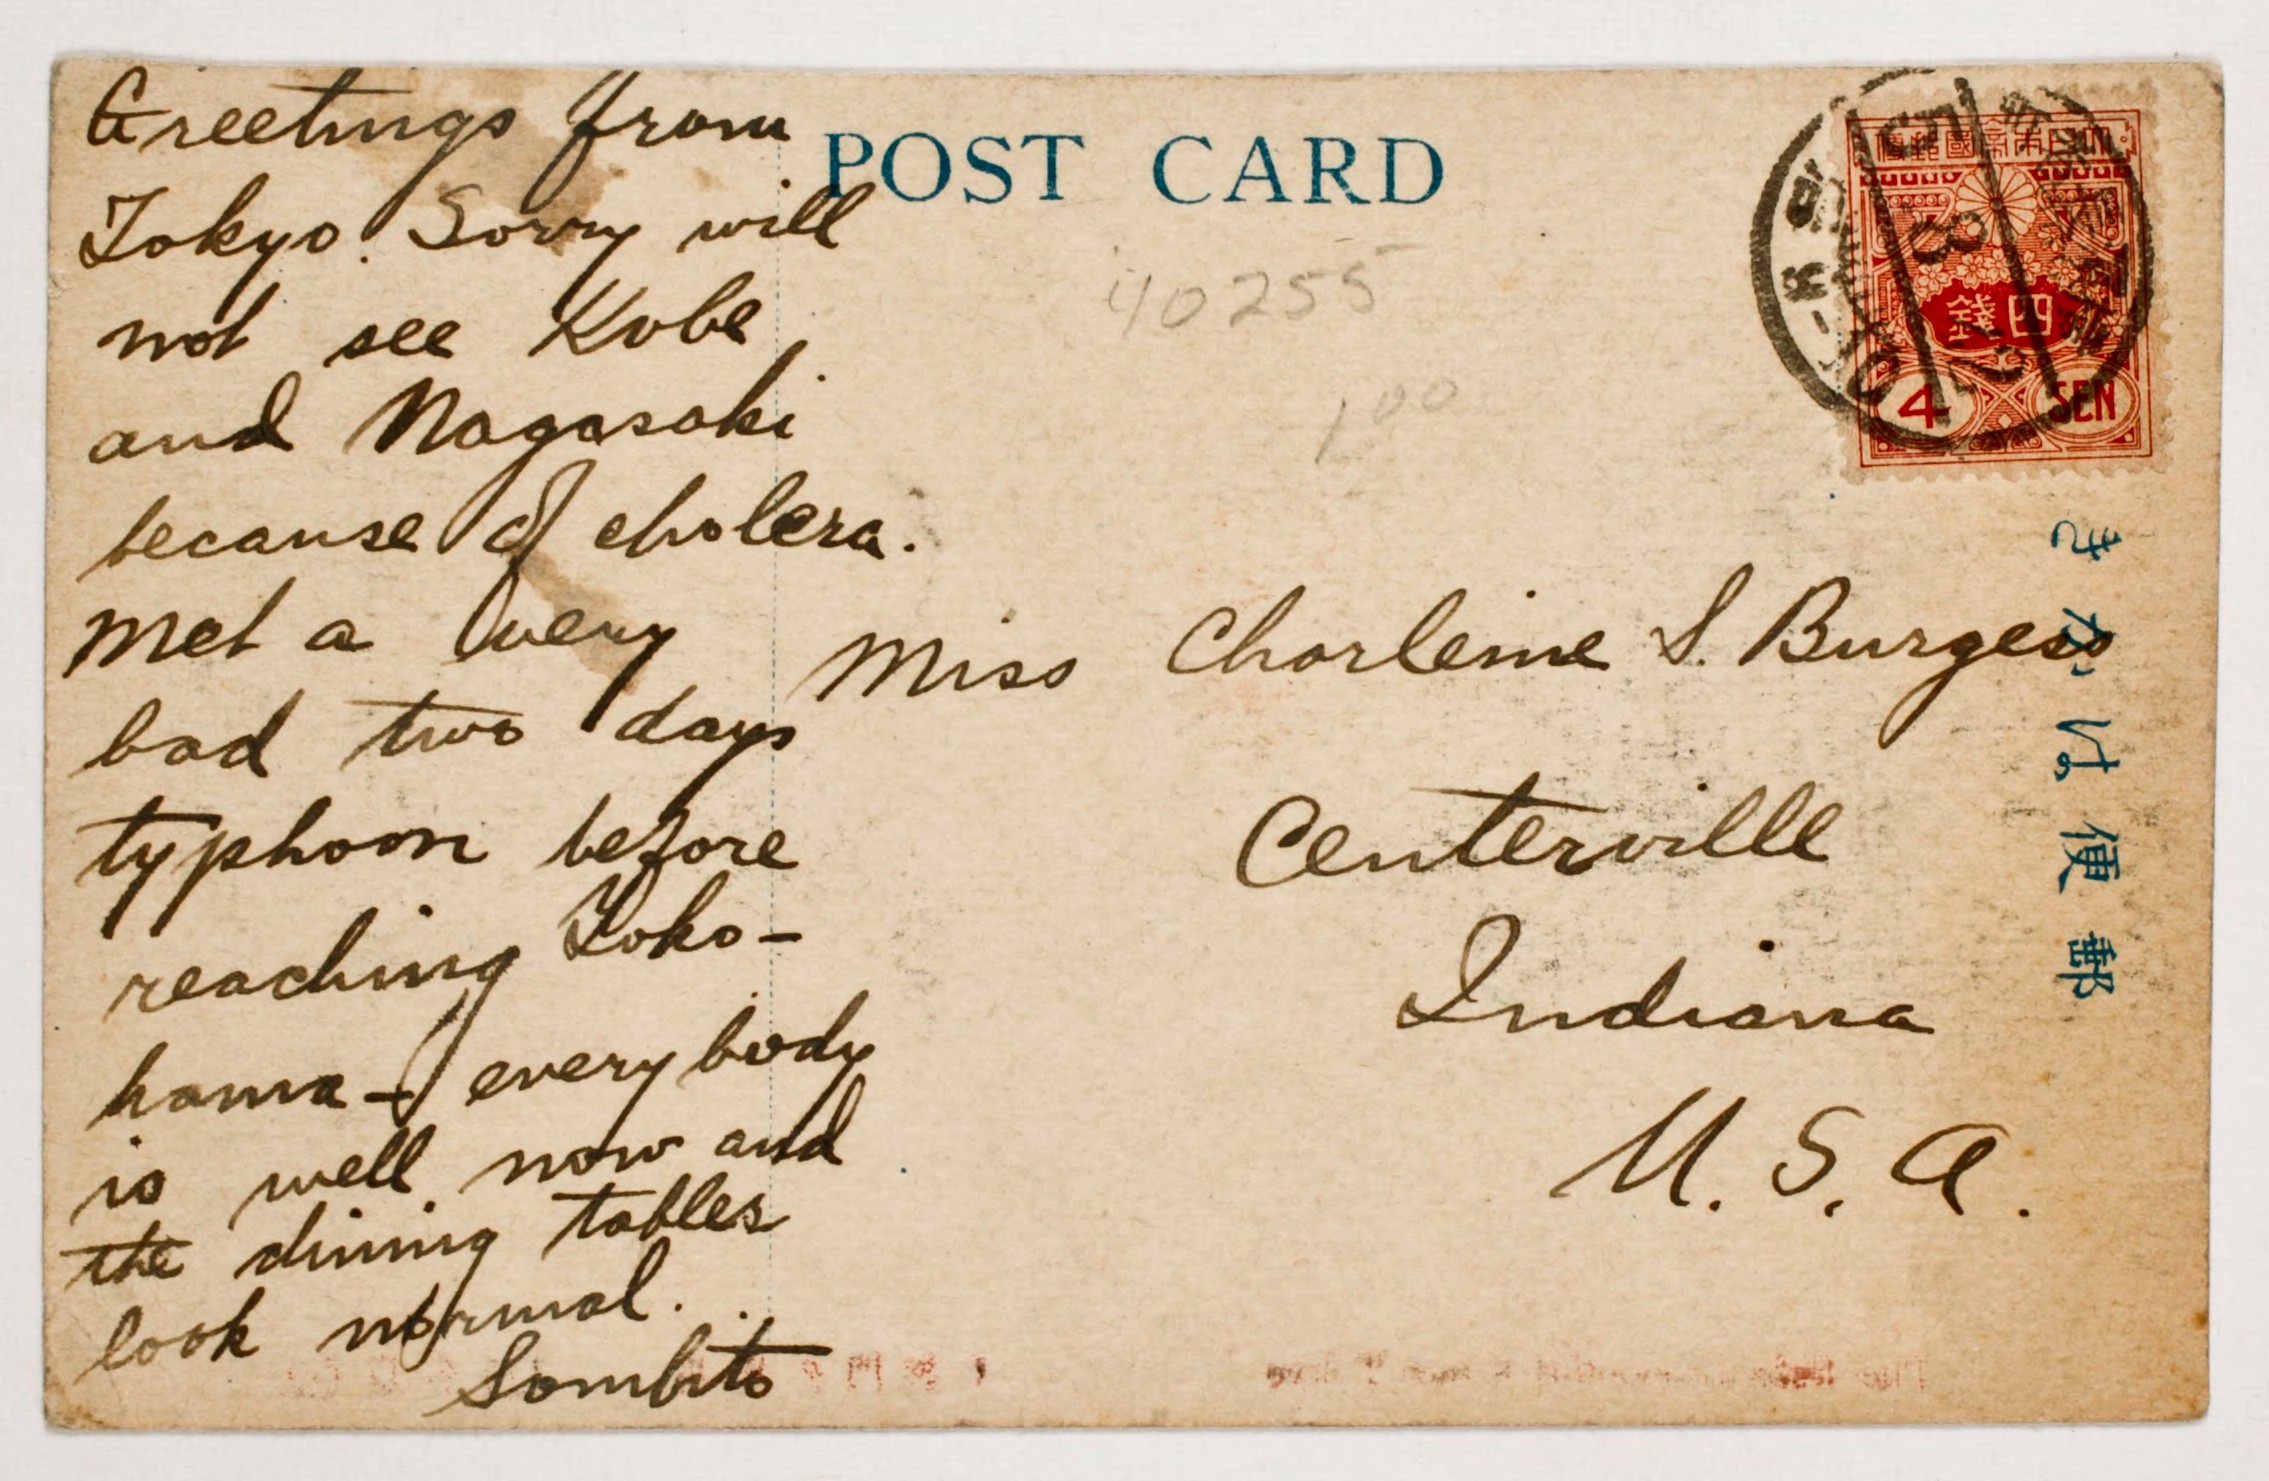 Greetings from
Tokyo. Sorry will
not see Kobe
and Nagasaki
because of cholera.
Met a very
bad two days
typhoon before
reaching Yoko-
hama - everybody
is well now and
the dining tables
look normal.
Sombito
POST CARD
40255
1 00
Miss Charleine S. Burgess
Centerville
Indiana
U. S. A.
大日本帝國郵便
四錢
4 SEN
郵便はかき